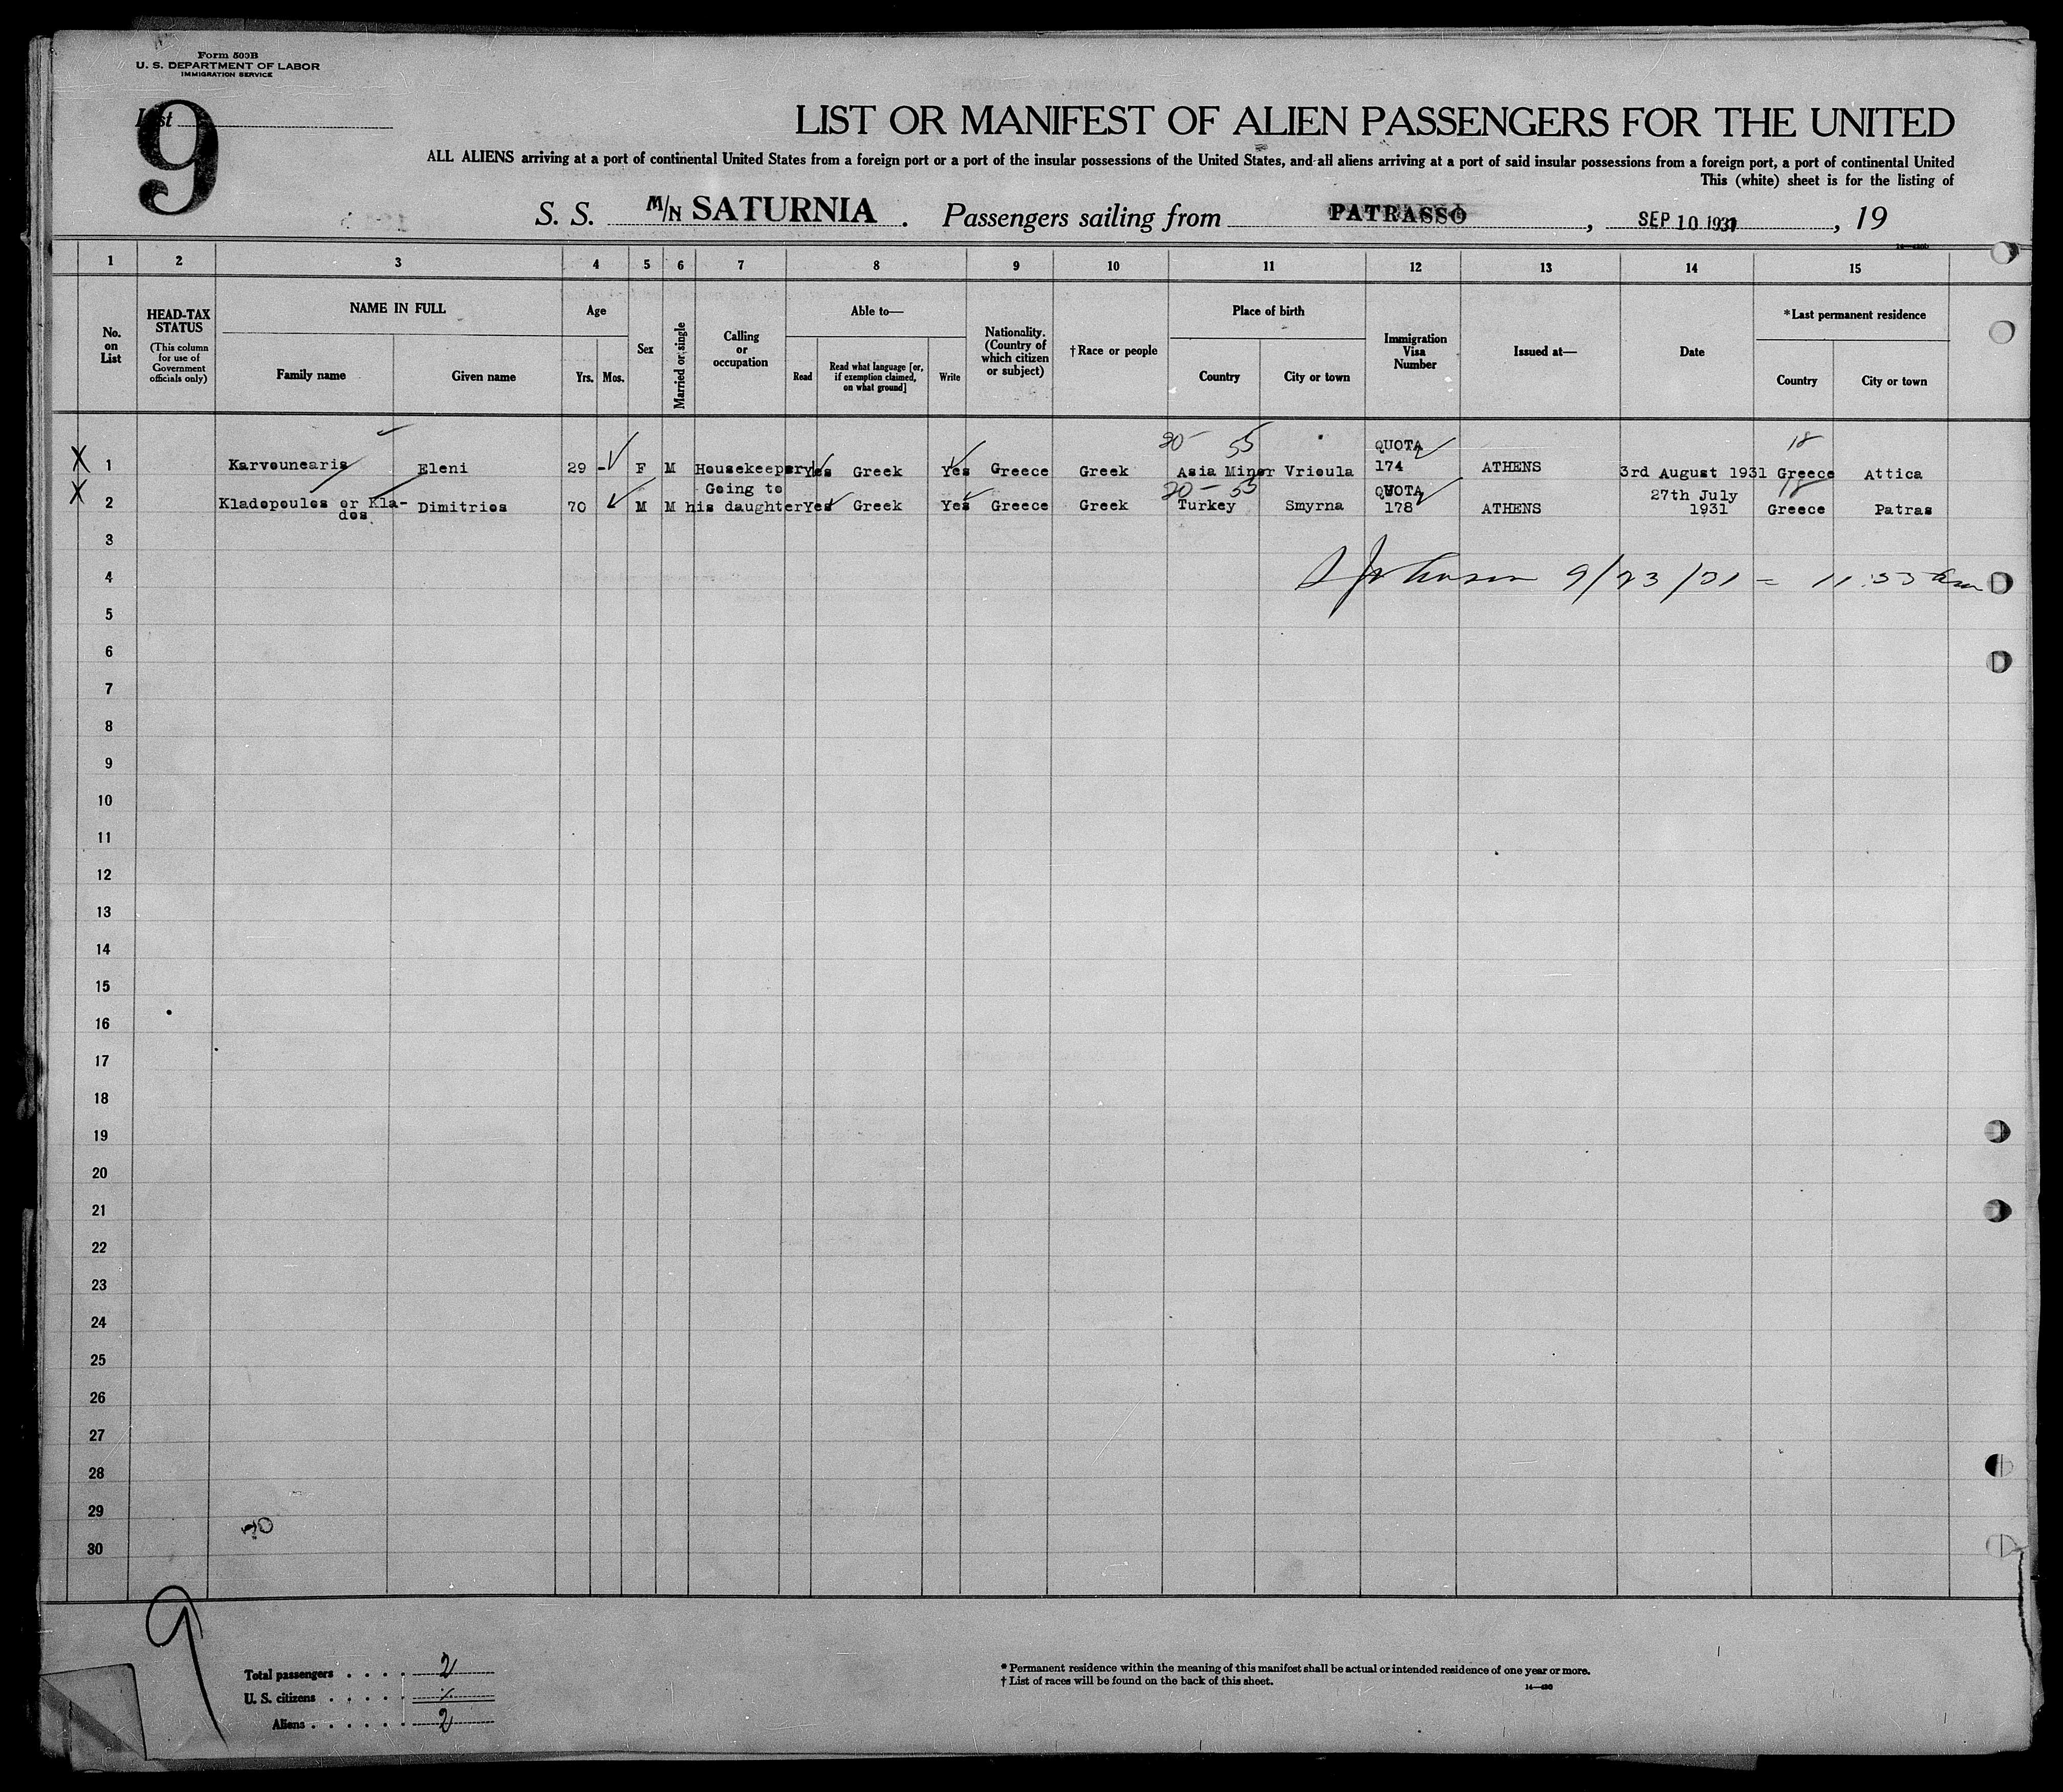 Form 500B
U. S. DEPARTMENT OF LABOR
IMMIGRATION SERVICE
List
9
LIST OR MANIFEST OF ALIEN PASSENGERS FOR THE UNITED
ALL ALIENS arriving at a port of continental United States from a foreign port or a port of the insular possessions of the United States, and all aliens arriving at a port of said insular possessions from a foreign port, a port of continental United
This (white) sheet is for the listing of
S. S. M/N SATURNIA . Passengers sailing from PATRASSO , SEP 10 1931 , 19
1 2 3 4 5 6 7 8 9 10 11 12 13 14 15
No. on List
HEAD-TAX STATUS
(This column for use of Government officials only)
NAME IN FULL
Family name Given name
Age
Yrs. Mos.
Sex
Married or single
Calling or occupation
Able to—
Read
Read what language [or, if exemption claimed, on what ground]
Write
Nationality. (Country of which citizen or subject)
†Race or people
Place of birth
Country City or town
Immigration Visa Number
Issued at—
Date
*Last permanent residence
Country City or town
20 55 QUOTA 18
X 1 Karvounearis Eleni 29 - F M Housekeeper Yes Greek Yes Greece Greek Asia Minor Vrioula 174 ATHENS 3rd August 1931 Greece Attica
Going to 20 - 55 QUOTA 27th July 18
X 2 Kladopoulos or Kla- Dimitrios 70 M M his daughter Yes Greek Yes Greece Greek Turkey Smyrna 178 ATHENS 1931 Greece Patras
dos
3
Johnson 9/23/31 = 11:55 am
4
5
6
7
8
9
10
11
12
13
14
15
16
17
18
19
20
21
22
23
24
25
26
27
28
29
30
9
Total passengers . . . . 2
U. S. citizens . . . . .
Aliens . . . . . . 2
* Permanent residence within the meaning of this manifest shall be actual or intended residence of one year or more.
† List of races will be found on the back of this sheet.
14—430